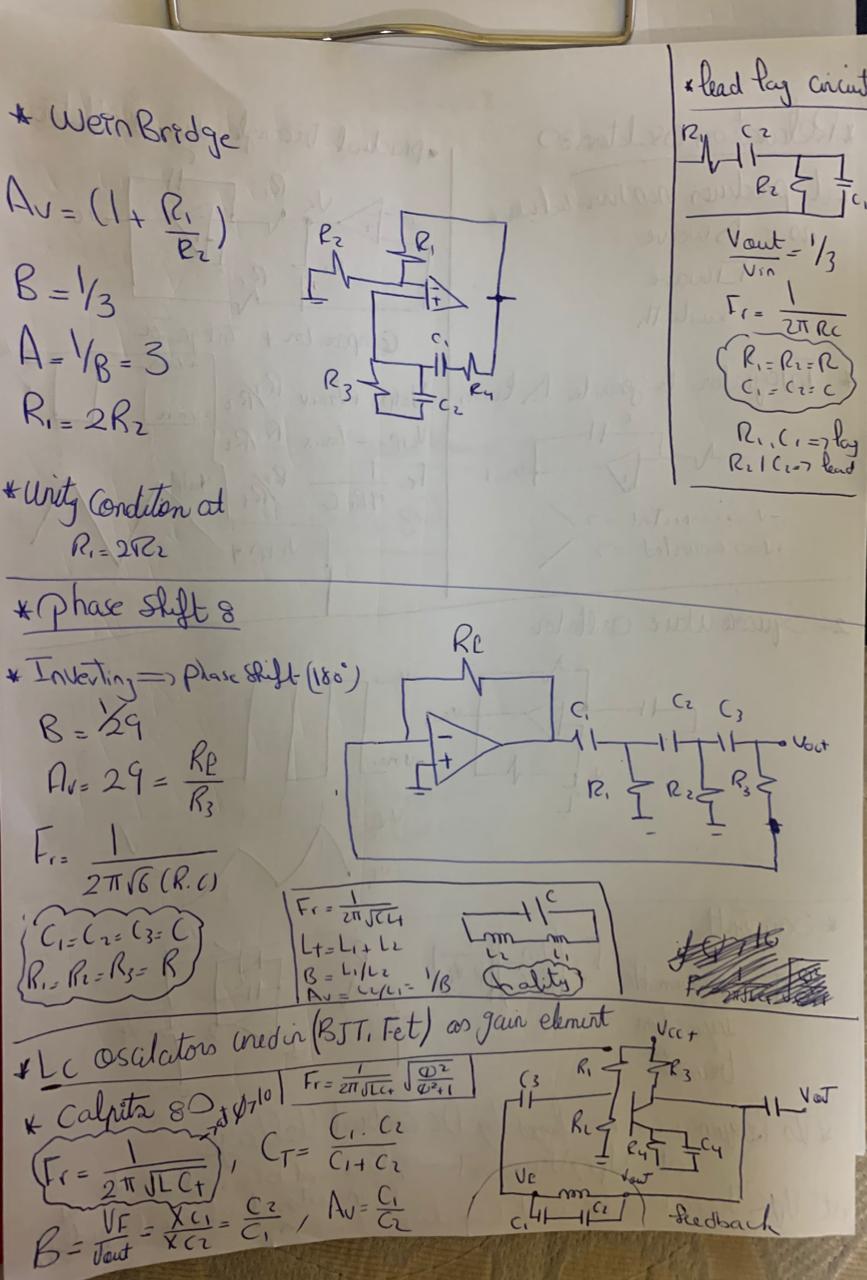 * Wein Bridge
Av = (1 + R₁/R₂)
B = 1/3
A = 1/B = 3
R₁ = 2R₂
* Unity Conditon at
R₁ = 2R₂
R₂
R₁
-
+
C₁
R₃
C₂
R₄
* lead lag circuit
R₁
C2
R₂
C₁
Vout/Vin = 1/3
Fr = 1/2π RC
R₁ = R₂ = R
C₁ = C₂ = C
R₁, C₁ => lag
R₂ / C₂ => lead
* Phase shift 8
* Inverting => phase shift (180°)
B = 1/29
Av = 29 = Rf/R₃
Fr = 1/2π√6 (R.C)
C₁ = C₂ = C₃ = C
R₁ = R₂ = R₃ = R
Rf
-
+
C₁
C₂
C₃
Vout
R₁
R₂
R₃
Fr = 1/2π√CLt
Lt = L₁ + L₂
B = L₁/L₂
Av = L₂/L₁ = 1/B
C
L₂
L₁
* Lc oscilators used in (BJT, Fet) as gain element
Fr = 1/2π√LCt √Q²/Q²+1
* Calpitz 8
at Q>10
Fr = 1/2π√LCt , CT = C₁ . C₂/C₁ + C₂
B = VF/Vout = XC₁/XC₂ = C₂/C₁ , Av = C₁/C₂
Vcc+
R₁
R₃
C3
R₂
R₄
C₄
Vout
VF
Vout
C₁
C₂
feedback